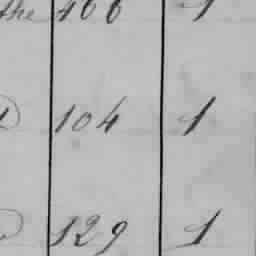 the 466 1
104 1
129 1